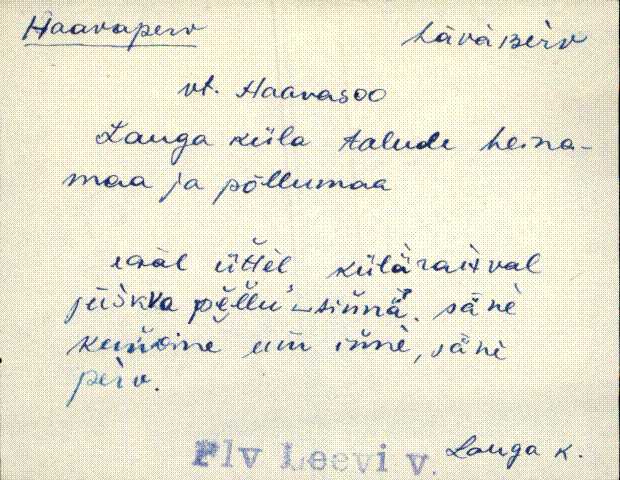 Haavaperv hävàperv
vt. Haavasoo
Lauga küla talude heina-
maa ja põllumaa
egäl üttèl külàraHval
jüškva pèllu sinnä. säne
kunoine um inne, säne
perv.
Plv Leevi v. Lauga k.